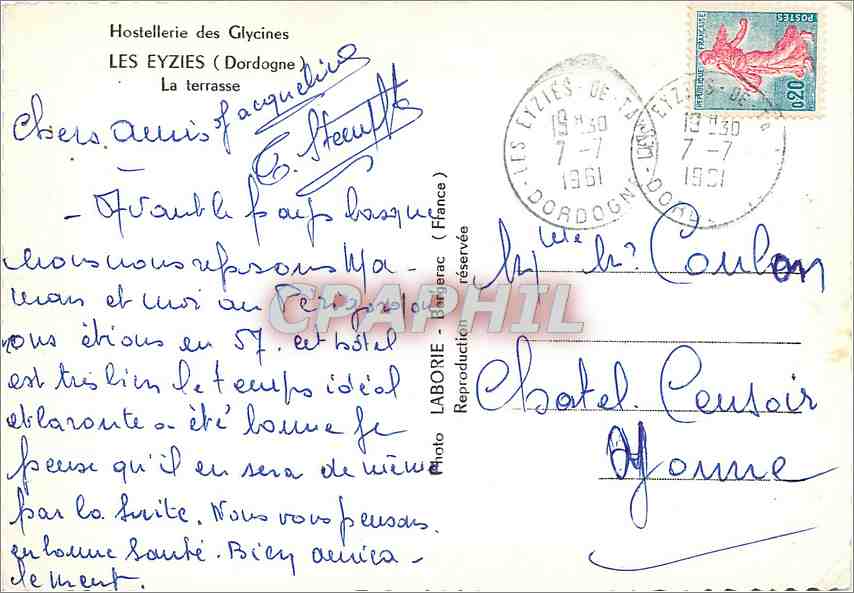 Hostellerie des Glycines
LES EYZIES (Dordogne)
La terrasse
Chers Amis
Jacqueline
- Avant le pays basque
nous nous reposons Ma-
man et moi au Périgord où
nous étions en 57. cet hôtel
est très bien le temps idéal
et la route a été bonne je
pense qu'il en sera de même
par la suite. Nous vous pensons
en bonne santé. Bien amica-
lement.
Photo LABORIE - Bergerac (France)
Reproduction réservée
REPUBLIQUE FRANÇAISE
POSTES
0,20
LES EYZIES-DE-
19H30
7-7
1961
DORDOGNE
LES EYZIES-DE-
19H30
7-7
1961
Mme Mr Coulon
Chatel Censoir
Yonne
CPAPHIL